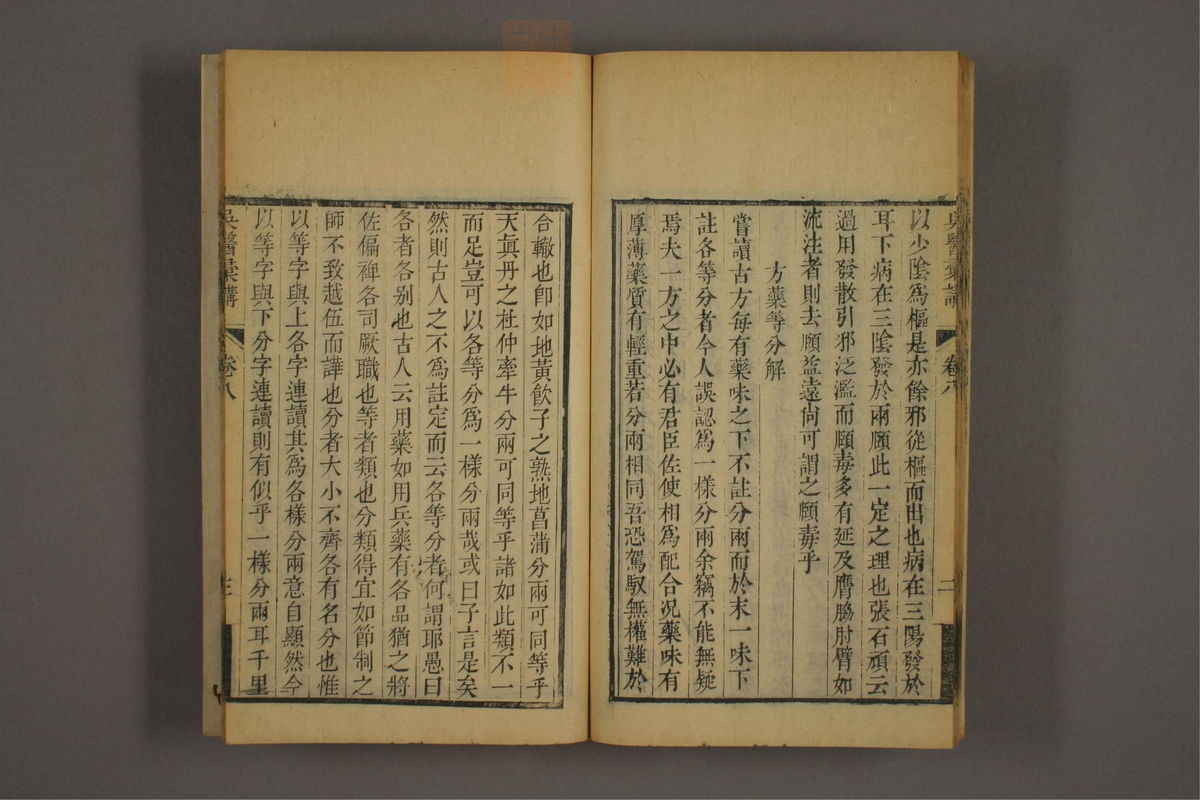 以少陰爲樞是亦餘邪從樞而出也病在三陽發於
耳下病在三陰發於兩頤此一定之理也張石頑云
過用發散引邪泛濫而頤毒多有延及膺脇肘臂如
流注者則去頤益遠尚可謂之頤毒乎
方藥等分解
嘗讀古方每有藥味之下不註分兩而於末一味下
註各等分者今人誤認爲一樣分兩余竊不能無疑
焉夫一方之中必有君臣佐使相爲配合况藥味有
厚薄藥質有輕重若分兩相同吾恐駕馭無權難於
吳醫彙講
卷八
二
合轍也卽如地黃飲子之熟地菖蒲分兩可同等乎
天眞丹之杜仲牽牛分兩可同等乎諸如此類不一
而足豈可以各等分爲一樣分兩哉或曰子言是矣
然則古人之不爲註定而云各等分者何謂耶愚曰
各者各别也古人云用藥如用兵藥有各品猶之將
佐偏裨各司厥職也等者類也分類得宜如節制之
師不致越伍而譁也分者大小不齊各有名分也惟
以等字與上各字連讀其爲各樣分兩意自顯然今
以等字與下分字連讀則有似乎一樣分兩耳千里
吳醫彙講
卷八
三